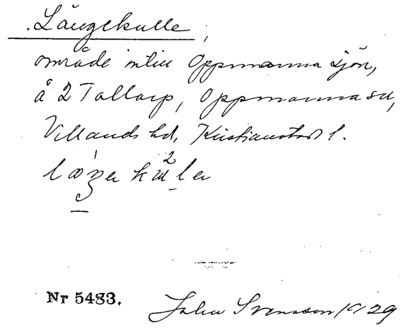 Längekulle,
område intill Oppmanna sjön,
å 2 Tollarp, Oppmanna sn,
Villands hd, Kristianstads l.
Nr 5483. John Svensson 1929